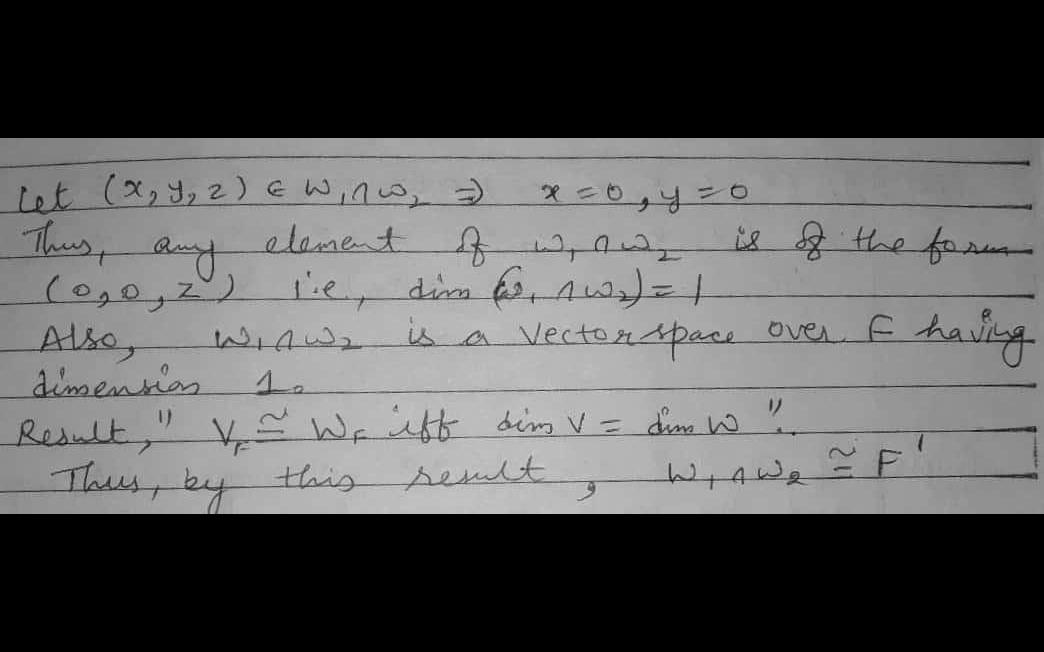 Let (x, y, z) ∈ W₁∩W₂ ⇒ x=0, y=0
Thus, any element of W₁∩W₂ is of the form
(0,0,z) i.e., dim (W₁∩W₂)=1
Also, W₁∩W₂ is a Vector space over F having
dimension 1.
Result, " V_F ≅ W_F iff dim V = dim W ".
Thus, by this result, W₁∩W₂ ≅ F¹